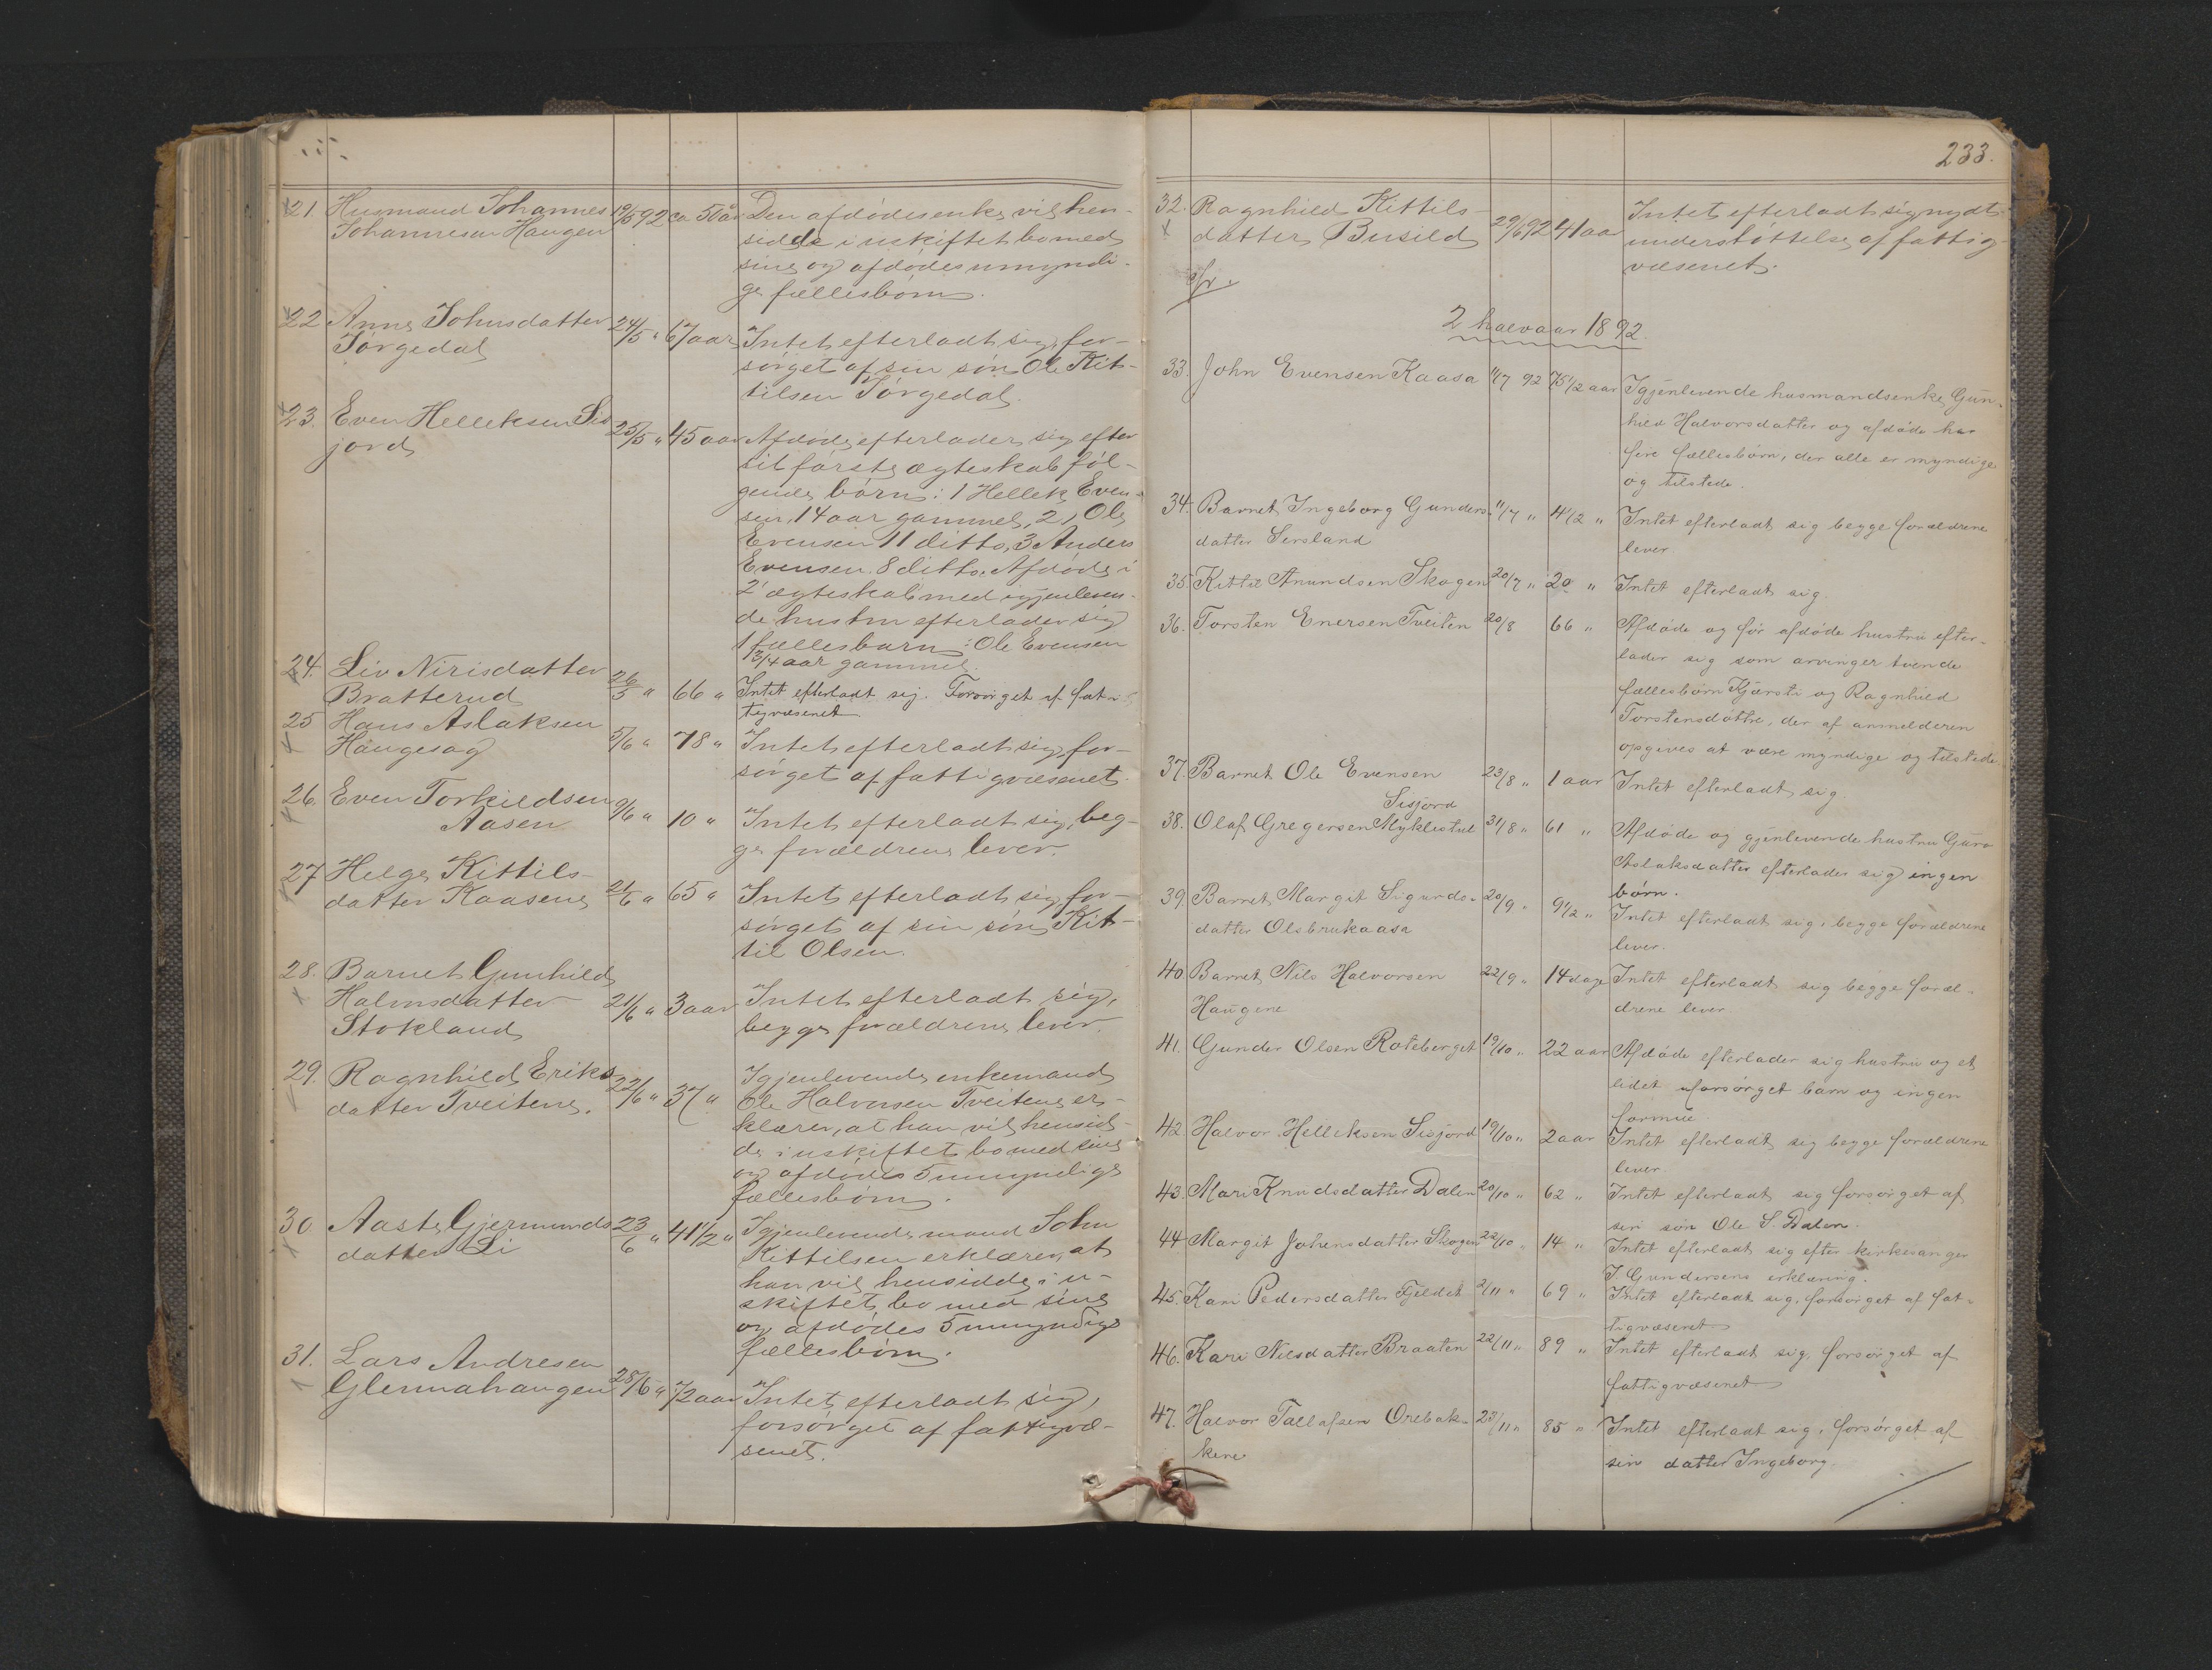 21. Husmand Johannes 19/5 92 ca 50 år Den afdødes enke vil hen-
Johannesen Haugen sidde i uskiftet bo med
sine og afdødes umyndi-
ge fællesbørn.
22 Anne Johnsdatter 24/5 " 67 aar Intet efterladt sig, for-
Tørgedal sørget af sin søn Ole Kit-
tilsen Tørgedal.
23. Even Helleksen Sis 25/5 " 45 aar Afdøde efterlader sig efter
jord sit første ægteskab føl-
gende børn: 1 Hellek Even-
sen, 14 aar gammel, 2, Ole
Evensen 11 ditto, 3 Anders
Evensen 8 ditto. Afdøde i
2' ægteskab med igjenleven-
de hustru efterlader sig
1 fællesbarn: Ole Evensen
1 3/4 aar gammel.
24. Liv Nirisdatter 26/5 " 66 " Intet efterladt sig. Forsørget af fat-
Bratterud tigvæsenet
25 Hans Aslaksen 5/6 " 78 " Intet efterladt sig, for-
Haugesag sørget af fattigvæsenet.
26. Even Torkildsen 9/6 " 10 " Intet efterladt sig, beg-
Aasen ge forældrene lever.
27 Helge Kittils- 21/6 " 65 " Intet efterladt sig, for-
datter Kaasene sørget af sin søn Kit-
til Olsen.
28. Barnet Gunhild
Halvorsdatter 21/6 " 3 aar Intet efterladt sig,
Stokland begge forældrene lever.
29. Ragnhild Eriks 22/6 " 37 " Igjenlevende enkemand
datter Tveitene. Ole Halvorsen Tveitene er-
klærer, at han vil hensid-
de i uskiftet bo med sine
og afdødes 5 umyndige
fællesbørn.
30 Aaste Gjermunds 23/6 " 41 1/2 " Igjenlevende mand John
datter Li Kittilsen erklærer, at
han vil hensidde i u-
skiftet bo med sine
og afdødes 5 umyndige
fællesbørn.
31. Lars Andresen
Glennahaugen 28/6 " 72 aar Intet efterladt sig,
forsørget af fattigvæ-
senet.
233.
32. Ragnhild Kittils- 29/6 92 41 aar Intet efterladt sig nydt
datter Busild understøttelse af fattig-
væsenet.
2 halvaar 1892.
33. John Evensen Kaasa 11/7 92 75 1/2 aar Igjenlevende husmandsenke Gun-
hild Halvorsdatter og afdøde har
fire fællesbørn, der alle er myndige
og tilstede.
34. Barnet Ingeborg Gunders- 11/7 " 4 1/2 " Intet efterladt sig begge forældrene
datter Sersland lever
35. Kittil Anundsen Skogen 20/7 " 20 " Intet efterladt sig.
36. Torsten Enersen Tveiten 20/8 66 " Afdøde og før afdøde hustru efter-
lader sig som arvinger tvende
fællesbørn Kjersti og Ragnhild
Torstensdøttre, der af anmelderen
opgives at være myndige og tilstede.
37. Barnet Ole Evensen 23/8 " 1 aar Intet efterladt sig.
Sisjord
38. Olaf Gregersen Myklestul 31/8 " 61 " Afdøde og gjenlevende hustru Guro
Aslaksdatter efterlader sig ingen
børn.
39. Barnet Margit Sigurds- 20/9 " 9 1/2 " Intet efterladt sig, begge forældrene
datter Olsbrukaasa lever.
40 Barnet Nils Halvorsen 22/9 " 14 dage Intet efterladt sig begge foræl-
Haugene drene lever
41. Gunder Olsen Roteberget 19/10 " 22 aar Afdøde efterlader sig hustru og et
lidet uforsørget barn og ingen
formue.
42. Halvor Helleksen Sisjord 19/10 " 2 aar Intet efterladt sig begge forældrene
lever.
43. Mari Knudsdatter Dalen 20/10 " 62 " Intet efterladt sig forsørget af
sin søn Ole S. Dalen.
44 Margit Johnsdatter Skogen 22/10 " 14 " Intet efterladt sig efter kirkesanger
J. Gundersens erklæring.
45. Kari Pedersdatter Fjeldet 2/11 " 69 " Intet efterladt sig, forsørget af fat-
tigvæsenet
46. Kari Nilsdatter Braaten 22/11 " 89 " Intet efterladt sig, forsørget af
fattigvæsenet
47. Halvor Tallafsen Orebak- 23/11 " 85 " Intet efterladt sig, forsørget af
kene sin datter Ingeborg.